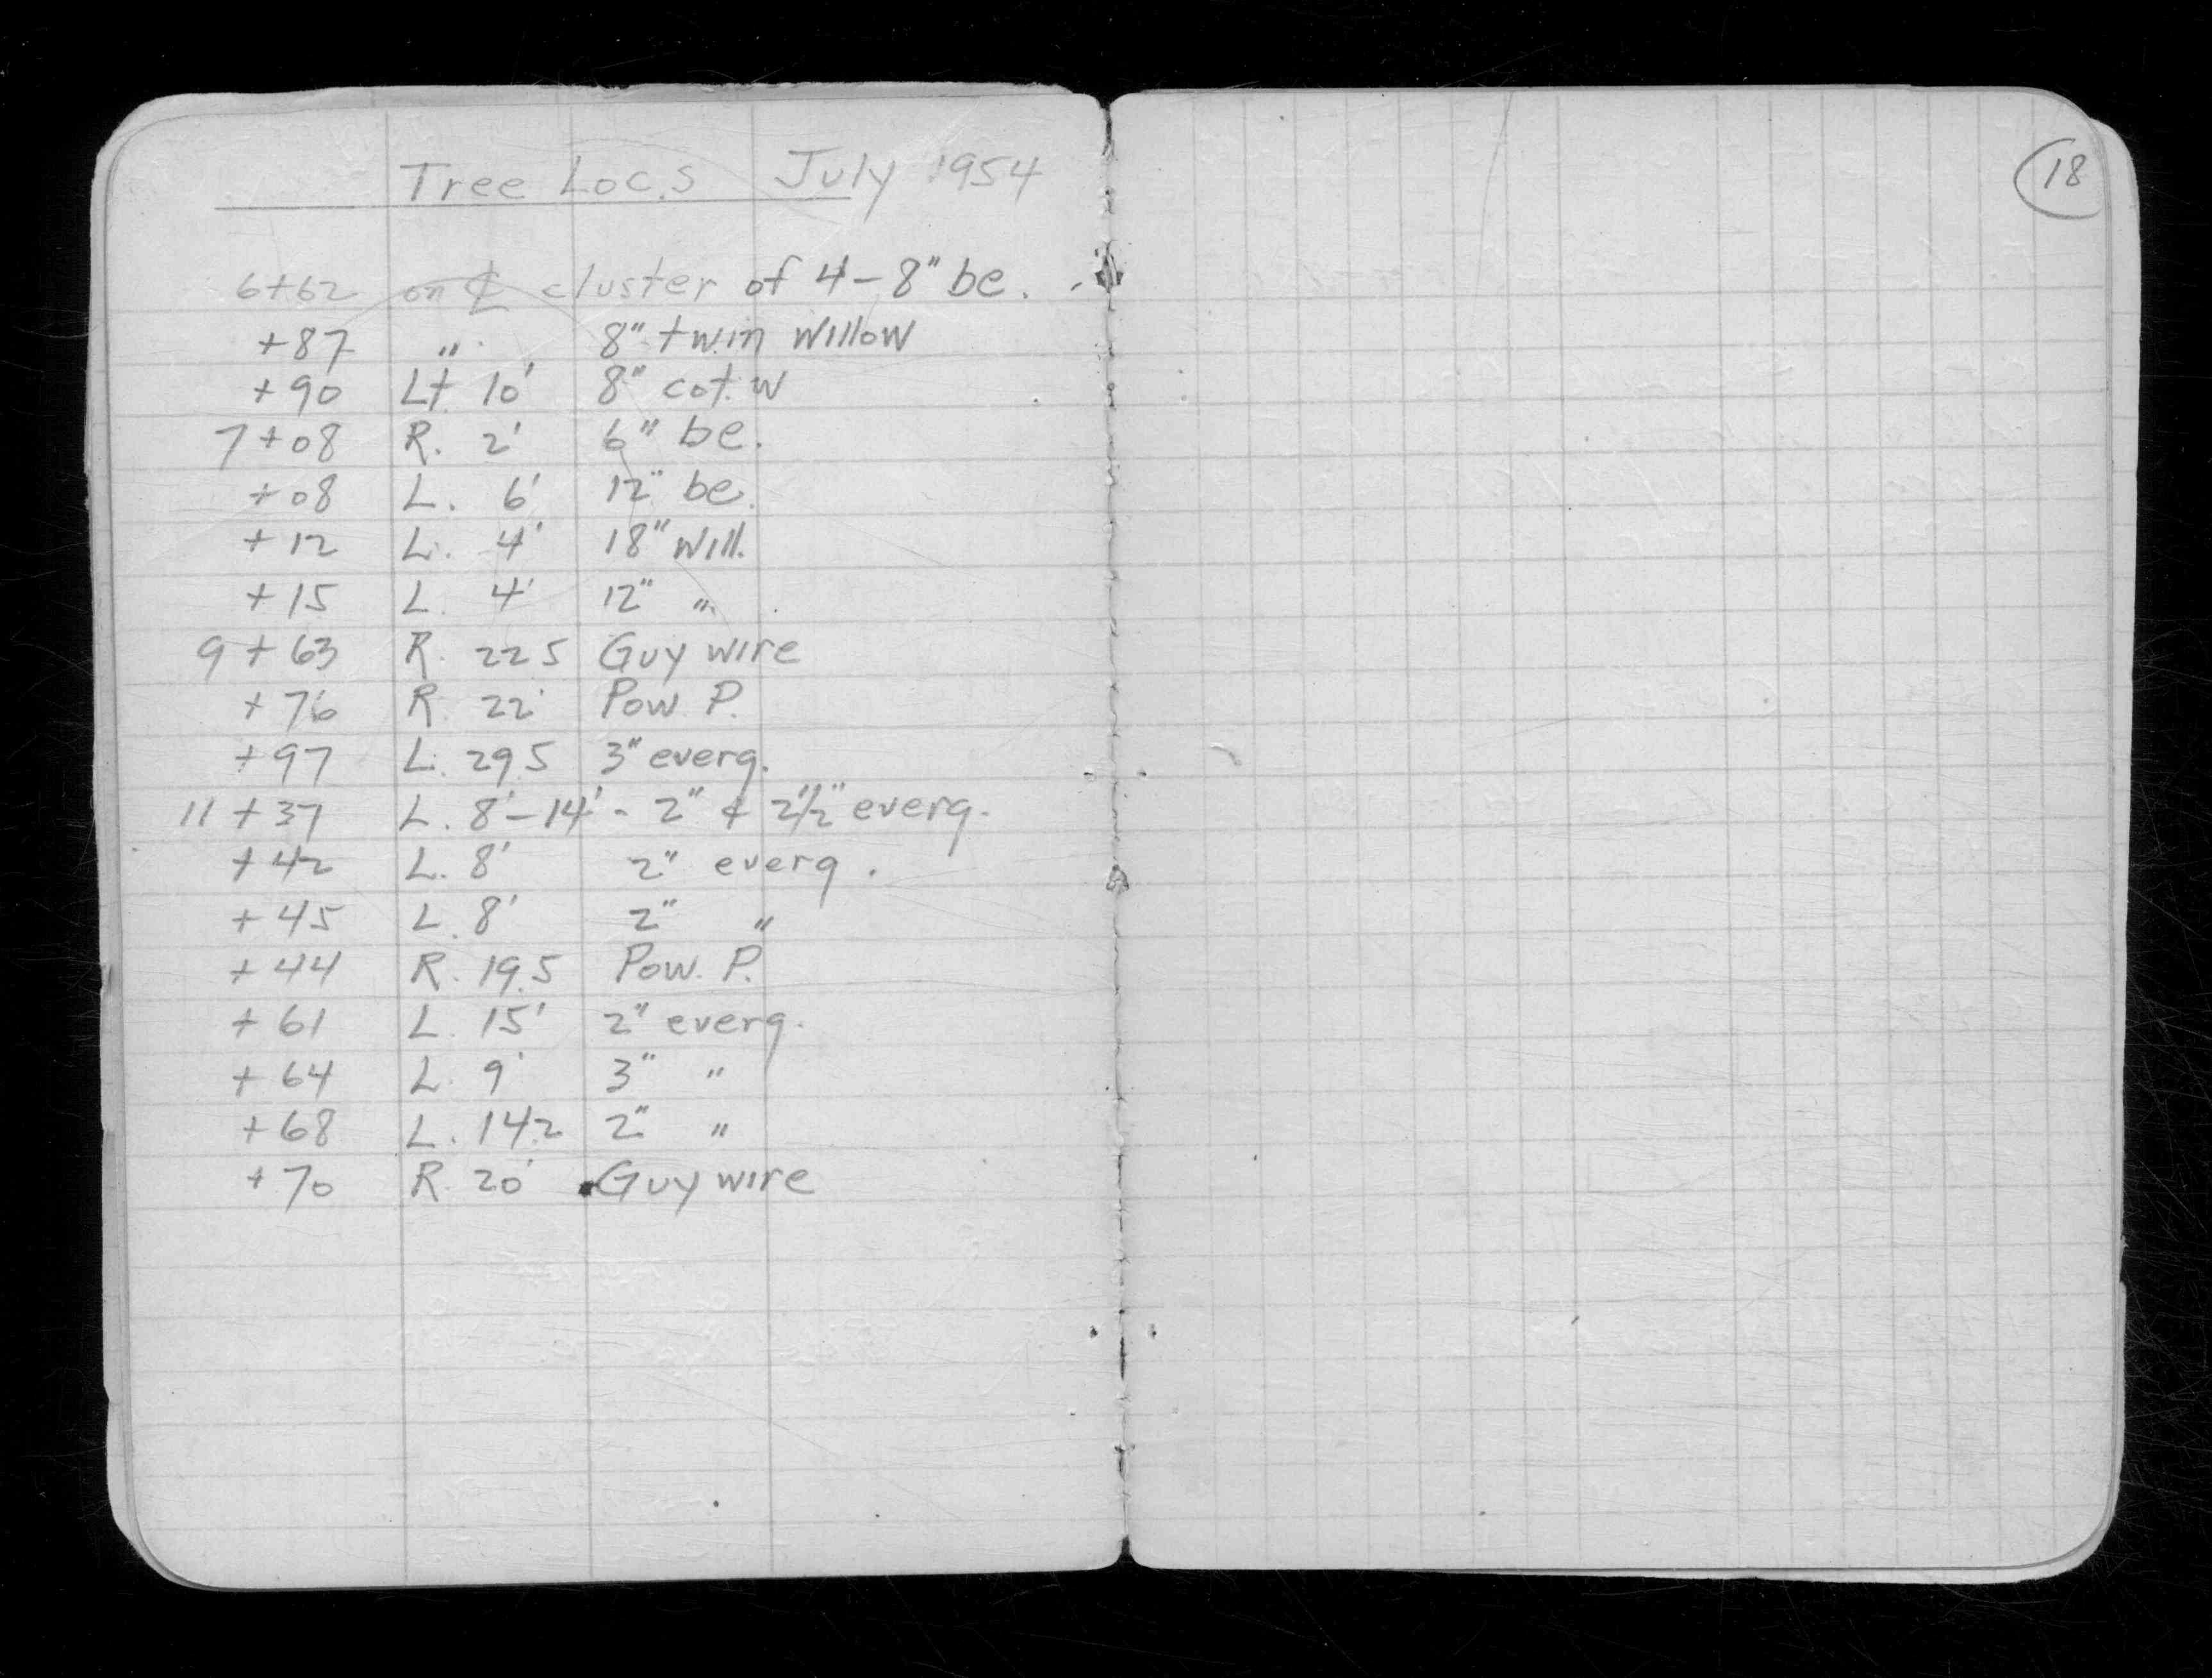 Tree Locs July 1954
18
6+62 on ℄ cluster of 4-8" be.
+87 " 8" twin willow
+90 Lt. 10' 8" cot. w
7+08 R. 2' 6" be.
+08 L. 6' 12" be.
+12 L. 4' 18" will.
+15 L. 4' 12" "
9+63 R. 22.5 Guy wire
+76 R. 22' Pow. P.
+97 L. 29.5 3" everg.
11+37 L. 8'-14' - 2" & 2½" everg.
+42 L. 8' 2" everg.
+45 L. 8' 2" "
+44 R. 19.5 Pow. P.
+61 L. 15' 2" everg.
+64 L. 9' 3" "
+68 L. 14.2 2" "
+70 R. 20' Guy wire